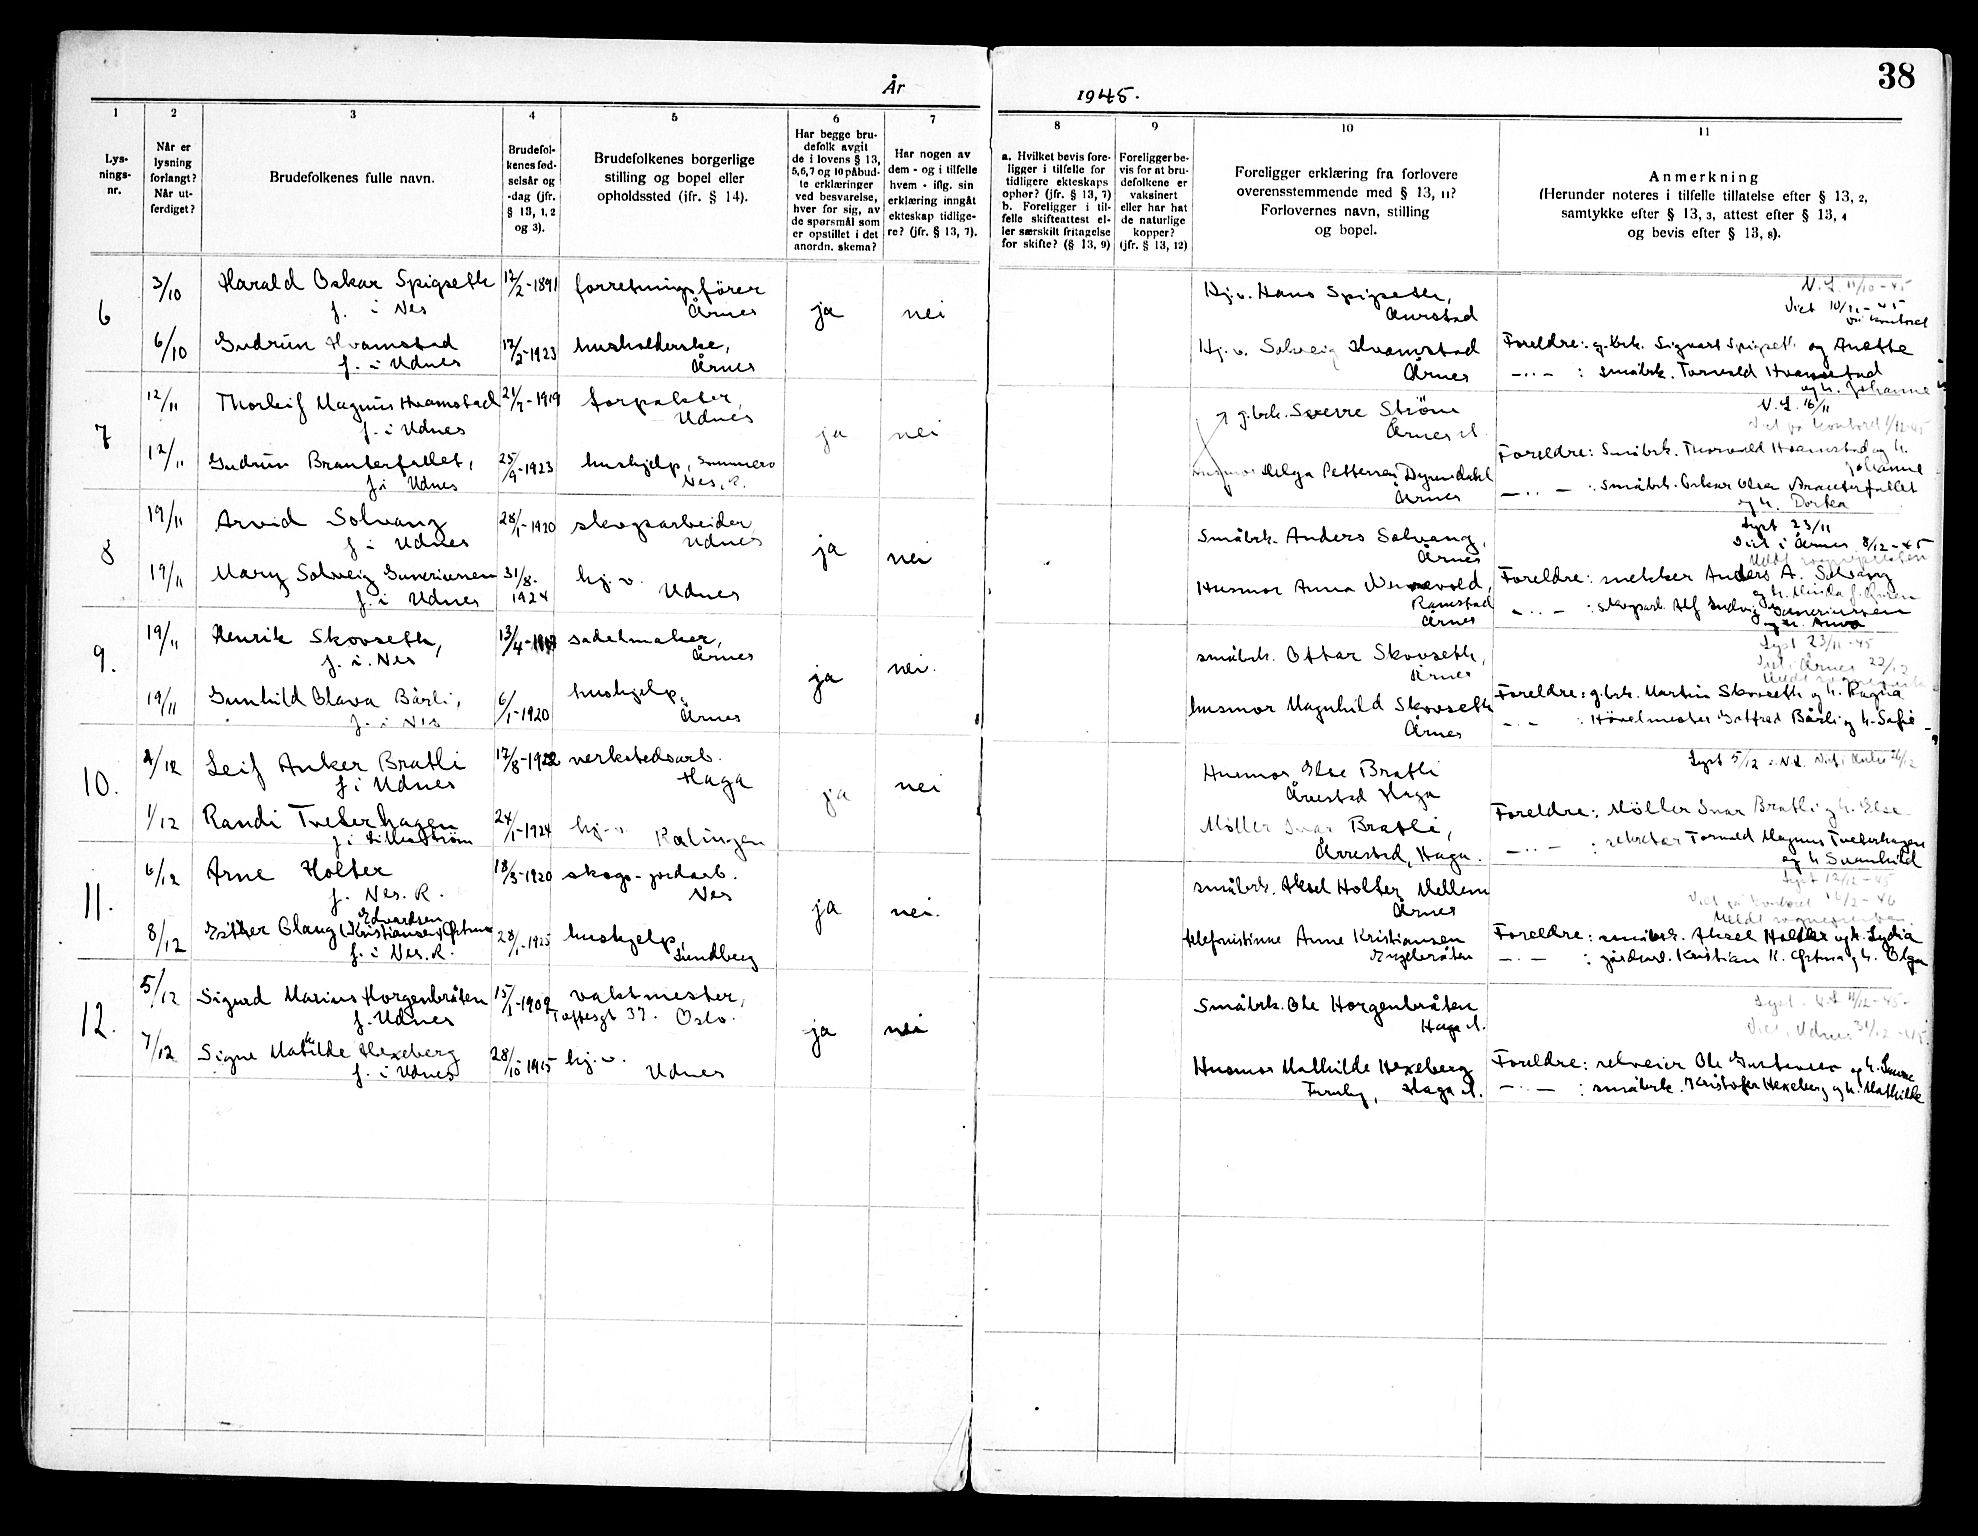 38
År 1945.
1 2 3 4 5 6 7 8 9 10 11
Lys-
nings-
nr.
Når er
lysning
forlangt?
Når ut-
ferdiget?
Brudefolkenes fulle navn.
Brudefol-
kenes fød-
selsår og
-dag (jfr.
§ 13, 1, 2
og 3).
Brudefolkenes borgerlige
stilling og bopel eller
opholdssted (ifr. § 14).
Har begge bru-
defolk avgit
de i lovens § 13,
5,6,7 og 10 påbud-
te erklæringer
ved besvarelse,
hver for sig, av
de spørsmål som
er opstillet i det
anordn. skema?
Har nogen av
dem - og i tilfelle
hvem - iflg. sin
erklæring inngåt
ekteskap tidlige-
re? (jfr. § 13, 7).
a. Hvilket bevis fore-
ligger i tilfelle for
tidligere ekteskaps
ophør? (jfr. § 13, 7)
b. Foreligger i til-
felle skifteattest el-
ler særskilt fritagelse
for skifte? (§ 13, 9)
Foreligger be-
vis for at bru-
defolkene er
vaksinert
eller har hat
de naturlige
kopper?
(jfr. § 13, 12)
Foreligger erklæring fra forlovere
overensstemmende med § 13, 11?
Forlovernes navn, stilling
og bopel.
Anmerkning
(Herunder noteres i tilfelle tillatelse efter § 13, 2,
samtykke efter § 13, 3, attest efter § 13, 4
og bevis efter § 13, 8).
6
3/10 Harald Oskar Spigseth 17/2-1891 forretningsfører
f. i Nes Årnes
ja nei
Hj.v. Hans Spigseth,
Aurstad
N.L. 11/10-45
Viet 10/11-45
på kontoret
6/10 Gudrun Hvamstad 17/2-1923 husholderske,
f. i Udnes Årnes
Hj.v. Solveig Hvamstad
Årnes
Foreldre: g.brk. Sigvart Spigseth og Anette
—..— : småbrk. Torvald Hvamstad
og h. Johanne
7
12/11 Thorleif Magnus Hvamstad 21/7-1919 forpakter,
f. i Udnes Udnes
ja nei
g.brk. Sverre Strøm
Årnes st.
N.L. 16/11
12/11 Gudrun Branterfallet, 25/9-1923 hushjelp,
f i Udnes Nes, R.
Helga Pettersen
Årnes
Foreldre: Småbrk. Thorvald Hvamstad og h.
Johanne
—..— : Småbrk. Oskar Olsen Branterfallet
og h. Dorthea
8
19/11 Arvid Solvang 28/1-1920 skogsarbeider
f i Udnes Udnes
ja nei
Småbrk. Anders Solvang,
Årnes
Lyst 23/11
Viet i Årnes 8/12-45
19/11 Mary Solveig Guneriussen 31/8-
f. i Udnes 1924 hj.v. Udnes
Husmor Anna
Ramstad
Årnes
Foreldre: snekker Anders A. Solvang
—..— : skogsarb. Alf Ludvig Guneriussen
og h. Anna
9.
19/11 Henrik Skovseth, 13/4- sadelmaker,
f. i. Nes Årnes
ja nei.
småbrk. Ottar Skovseth,
Årnes
Lyst 23/11-45
19/11 Gunhild Olava Bårli, 6/1-1920 hushjelp,
f. i Nes Årnes
husmor Magnhild Skovseth
Årnes
Foreldre: g.brk. Martin Skovseth og h. Ragna
—..— : Høvelmester Gotfred Bårli og h. Sofie
10.
4/12 Leif Anker Bratli 17/8-1922 verkstedsarb.
f i Udnes Haga
ja nei
Husmor Else Bratli
Årrestad Haga
Lyst 5/12
1/12 Randi Tveterhagen 24/1-1924 hj.v.
f i Lillestrøm
Møller Ivar Bratli,
Årrestad, Haga.
Foreldre: Møller Ivar Bratli og h. Else
—..— : sekretær Torvald Magnus Tveterhagen
og h. Svanhild
11.
6/12 Arne Holter 18/3-1920 skogs- jordarb.
f. Nes. R. Nes
ja nei.
småbrk. Aksel Holter Mellem
Årnes
Lyst 12/12-45
8/12 Esther Olaug (Kristiansen) Edvardsen 28/1-1925 hushjelp,
f. i Nes. R. Sundberg
telefonistinne Anne Kristiansen
Foreldre: småbrk. Aksel Holter og h. Lydia
—..— : Kristian K. og h. Olga
12.
5/12 Sigurd Marius Horgenbråten 15/1-1909 vaktmester,
f. Udnes Toftesgt 37. Oslo.
ja nei
Småbrk. Ole Horgenbråten
Haga st.
7/12 Signe Matilde Hexeberg 28/10 1915 hj.v.
f. i Udnes Udnes
Husmor Mathilde Hexeberg
Haga st.
Foreldre: Ole Gustavsen og h.
—..— : småbrk. Kristofer Hexeberg og h. Mathilde